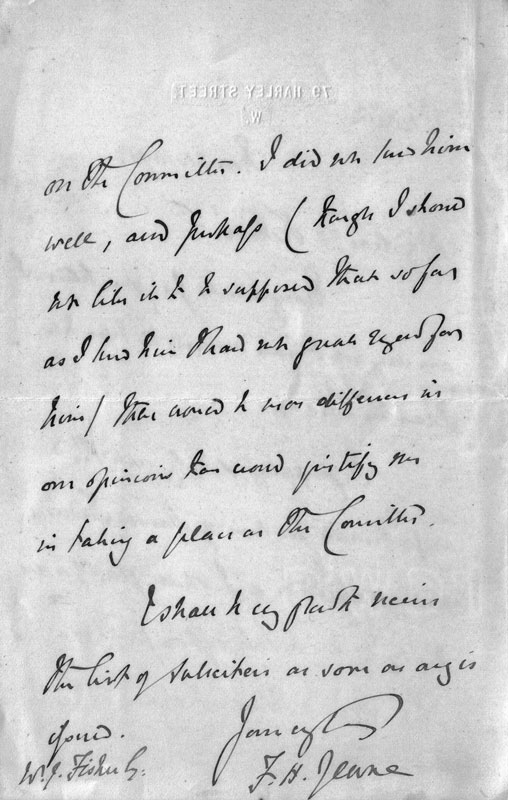 79 HARLEY STREET
W.
on the Committee. I did not know him
well, and perhaps (though I should
not like it to be supposed that so far
as I knew him I had not great regard for
him) there would be more difference in
our opinions than would justify me
in taking a place on the Committee.
I shall be very glad to receive
the list of subscribers as soon as any is
Yours
F. H. Jeune
W. J. Fisher Esq.